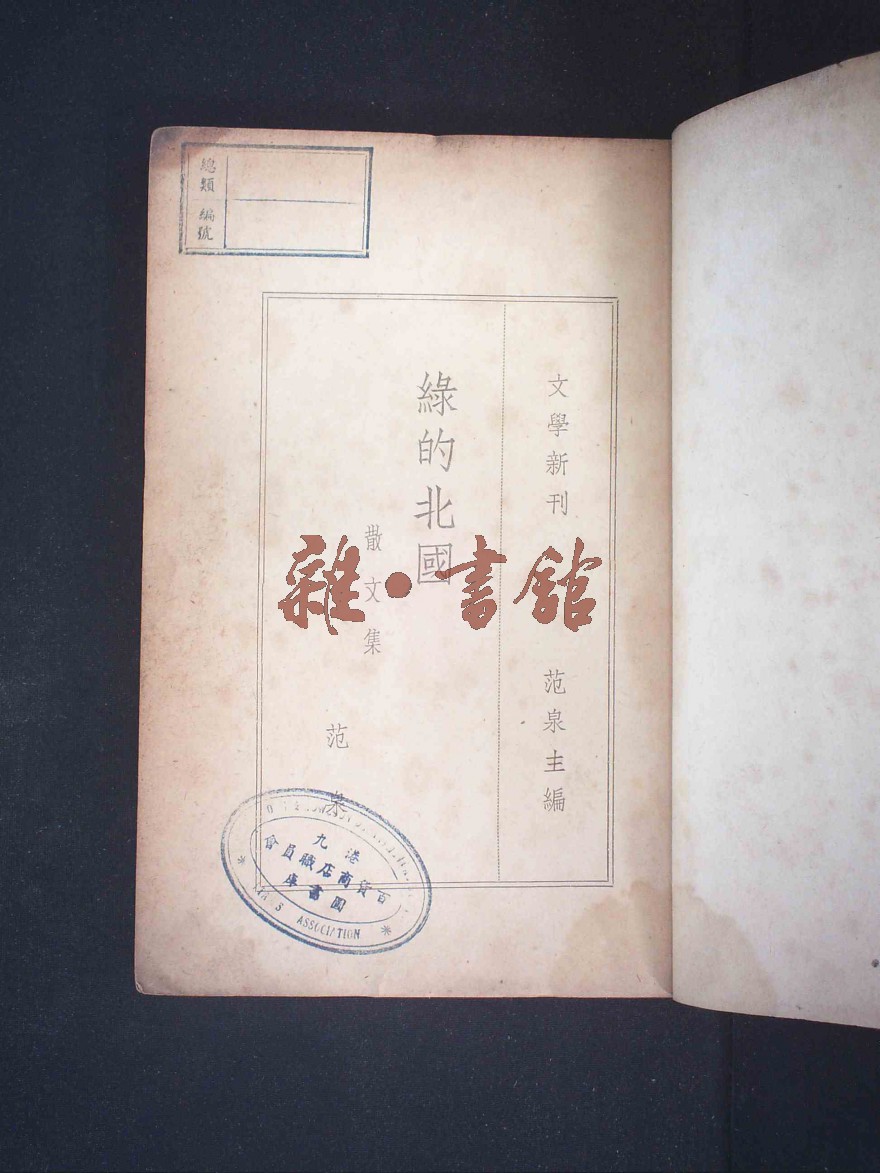 總類
編號
文學新刊
范泉主編
綠的北國
散文集
范泉
雜·書館
港九
百貨商店職員會
圖書庫
ASSOCIATION